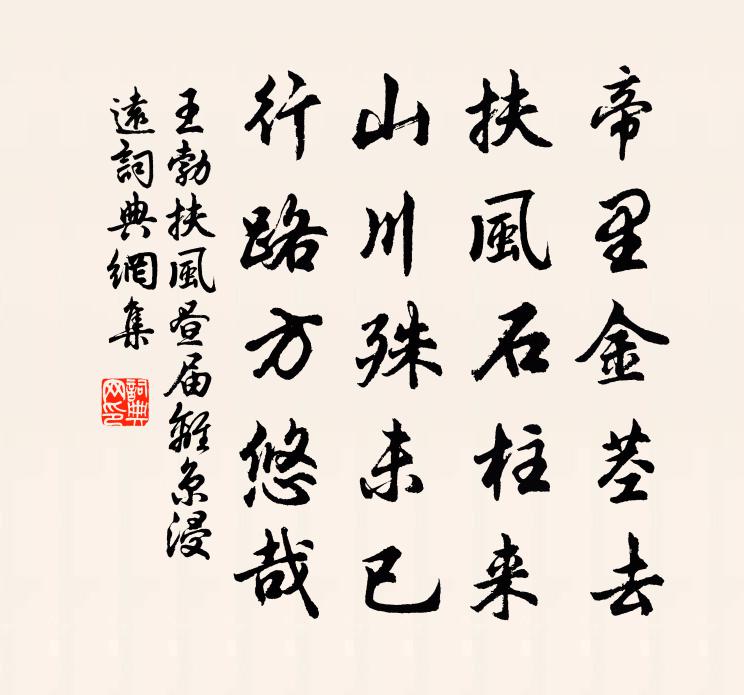 帝里金茎去
扶風石柱来
山川殊未已
行路方悠哉
王勃扶風昼届離京浸
遠詞典網集
詞典
网印